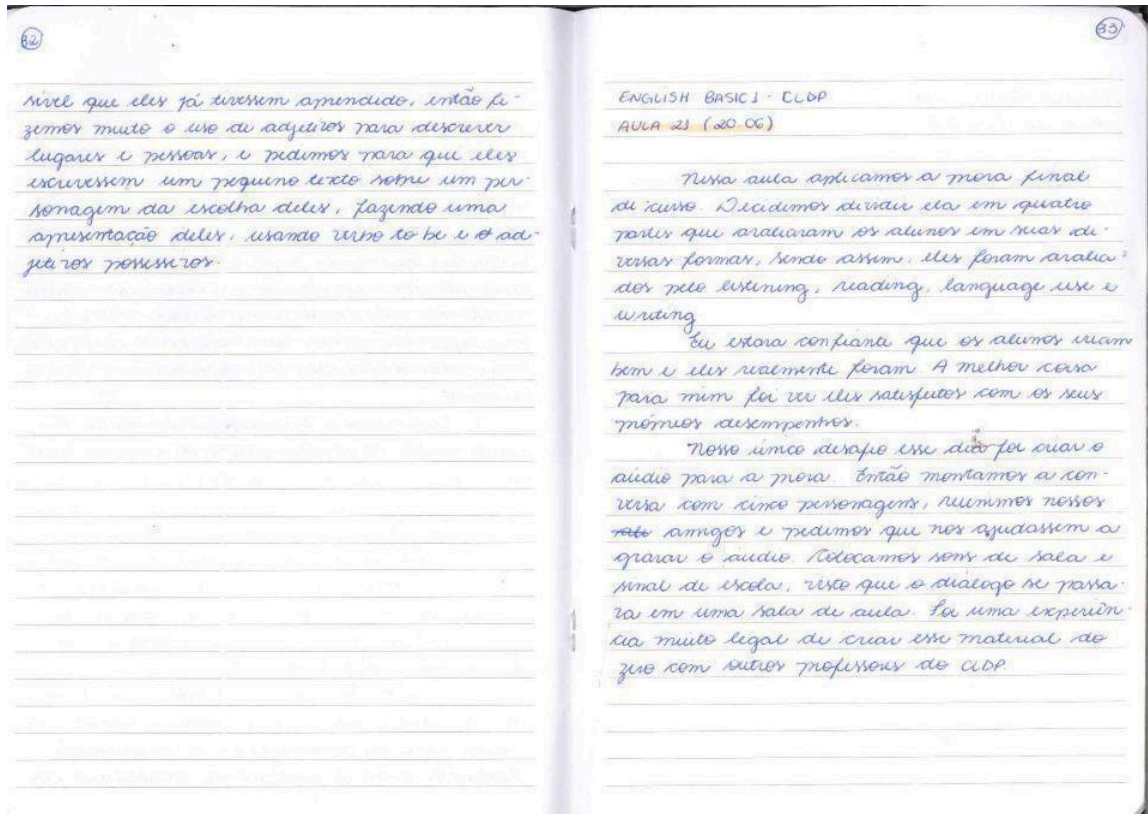 32
nível que eles já tivessem aprendido, então fi-
zemos muito o uso de adjetivos para descrever
lugares e pessoas, e pedimos para que eles
escrevessem um pequeno texto sobre um per-
sonagem da escolha deles, fazendo uma
apresentação deles, usando verbo to be e ad-
jetivos possessivos.
33
ENGLISH BASIC 1 - CLDP
AULA 21 (20.06)
Nessa aula aplicamos a prova final
de curso. Decidimos dividir ela em quatro
partes que avaliaram os alunos em suas di-
versas formas, sendo assim, eles foram avalia-
dos pelo listening, reading, language use e
writing
Eu estava confiante que os alunos iriam
bem e eles realmente foram. A melhor coisa
para mim foi ver eles satisfeitos com os seus
próprios desempenhos.
Nosso único desafio esse dia foi criar o
áudio para a prova. Então montamos a con-
versa com cinco personagens, reunimos nossos
amigos e pedimos que nos ajudassem a
gravar o áudio. Colocamos sons de sala e
sinal de escola, visto que o diálogo se passa-
va em uma sala de aula. Foi uma experiên-
cia muito legal de criar esse material do
zero com outros professores do CLDP.